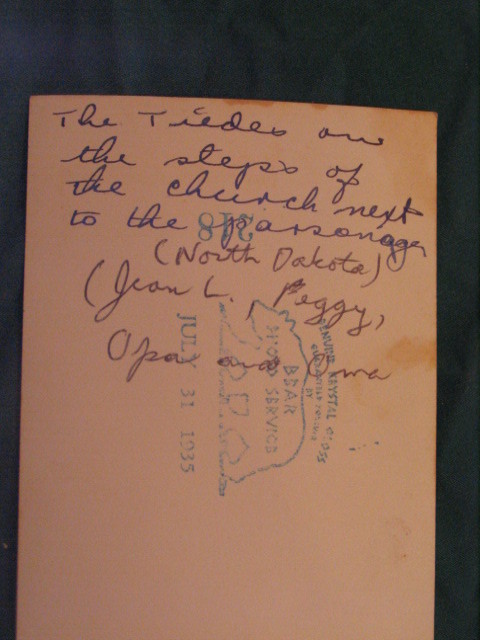 The Tiedes on
the steps of
the church next
to the parsonage
(North Dakota)
(Jean L., Peggy,
Opa and Oma
218
JULY 31 1935
BEAR
PHOTO SERVICE
GENUINE KRYSTAL GLOSS
BY